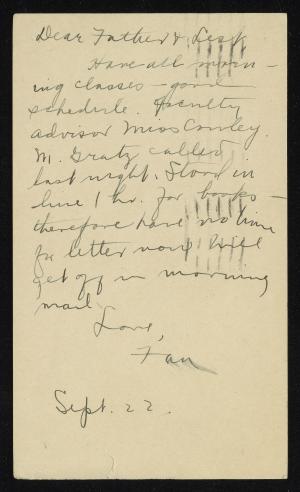 Dear Father &
Have all morn-
ing classes - good
schedule. Faculty
advisor Miss Conley.
M. Gratz called
last night. Stood in
line 1 hr. for books -
therefore have no time
for letter now. Will
get off in morning
mail
Love,
Fan
Sept. 22.